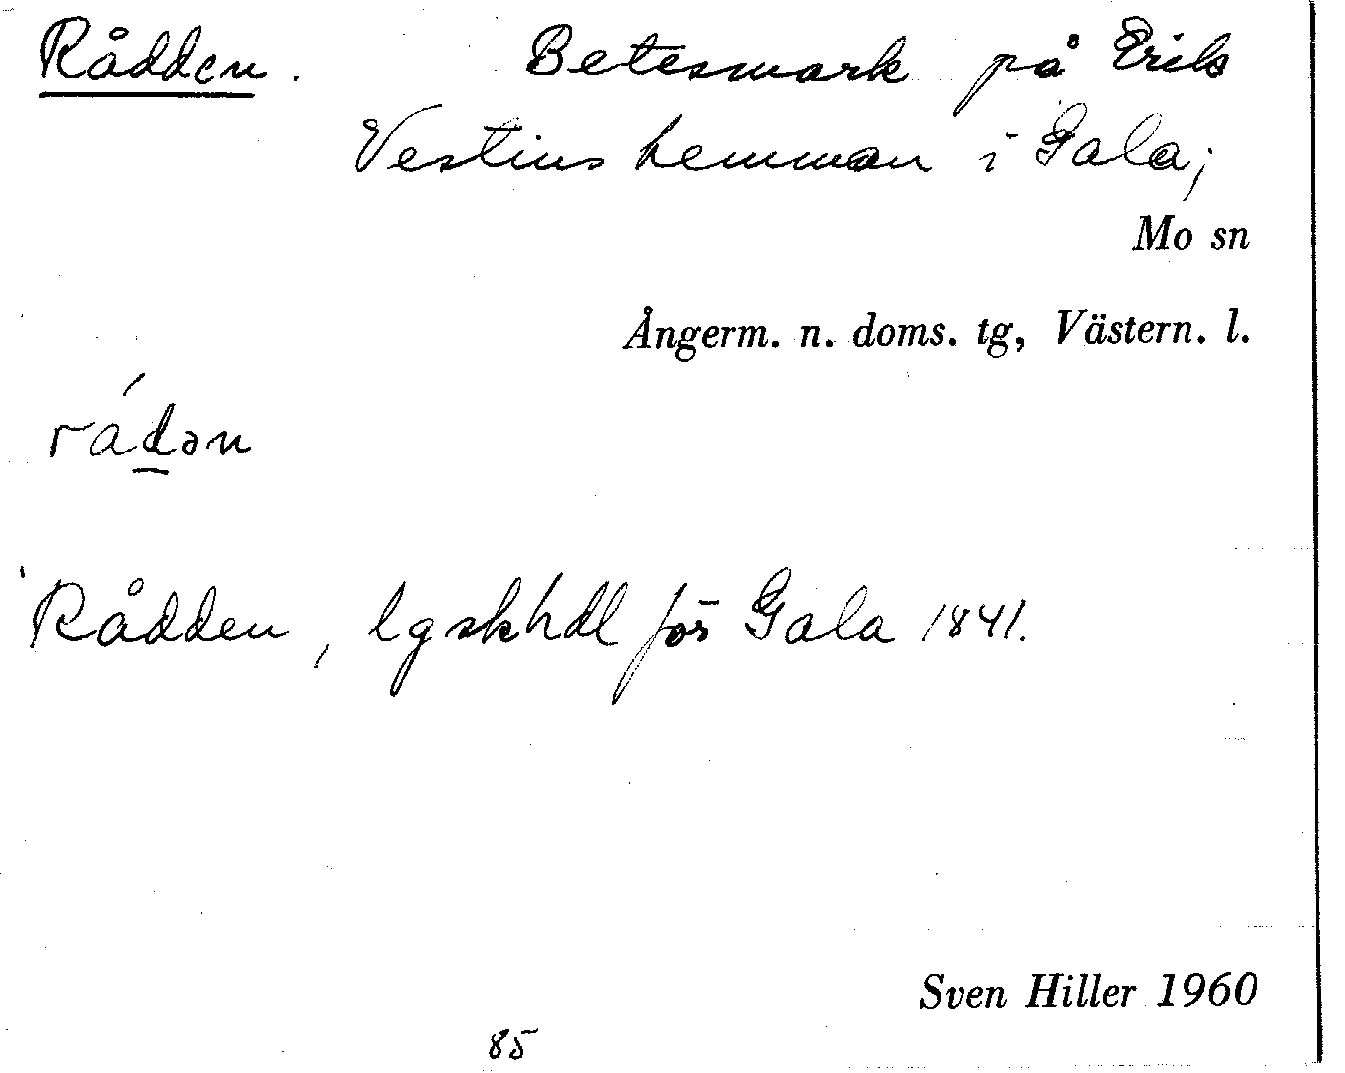 Rådden. Betesmark på Erik
Vestins hemman i Gala;
Mo sn
Ångerm. n. doms. tg, Västern. l.
rád̲ən
Rådden, lgskhdl för Gala 1841.
Sven Hiller 1960
85